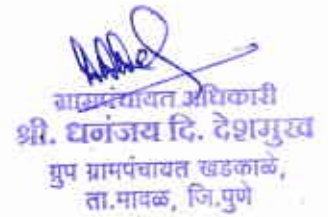 ग्रामपंचायत अधिकारी
श्री. धनंजय दि. देशमुख
ग्रुप ग्रामपंचायत खडकाळे,
ता.मावळ, जि.पुणे